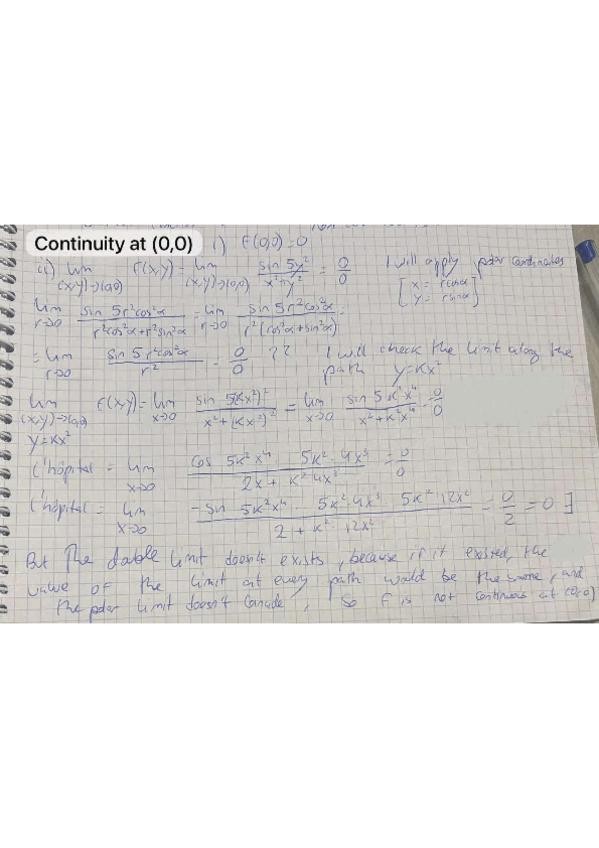 Continuity at (0,0) i) F(0,0)=0
ii) lim (x,y)→(0,0) F(x,y) = lim (x,y)→(0,0) sin 5y² / x²+y² = 0/0 I will apply polar coordinates
[x = rcosα y = rsinα]
lim r→0 sin 5r²cos²α / r²cos²α+r²sin²α = lim r→0 sin 5r²cos²α / r²(cos²α+sin²α) =
= lim r→0 sin 5r²cos²α / r² = 0/0 ?? I will check the limit along the
path y=Kx²
lim (x,y)→(0,0) y=Kx² F(x,y) = lim x→0 sin 5(Kx²)² / x²+(Kx²)² = lim x→0 sin 5K²x⁴ / x²+K²x⁴ = 0/0
L'hôpital = lim x→0 cos 5K²x⁴ · 5K²·4x³ / 2x + K²4x³ = 0/0
L'hôpital = lim x→0 -sin 5K²x⁴ · 5K²·4x³ · 5K²·12x² / 2 + K²·12x² = 0/2 = 0 ∃
But The double limit doesn't exists, because if it existed, the
value of the limit at every path would be the same, and
the polar limit doesn't , so F is not continuous at (0,0)